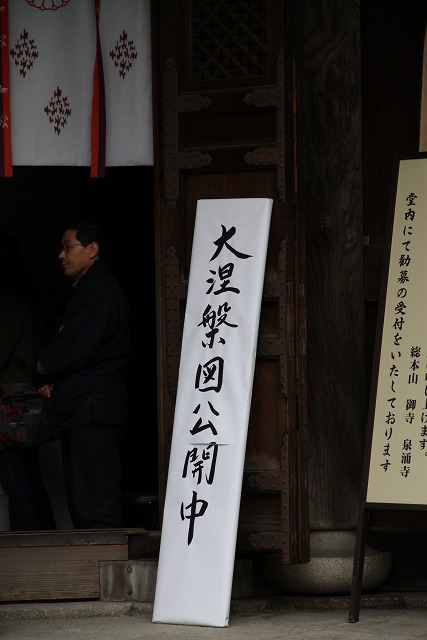 大涅槃図公開中
堂内にて勧募の受付をいたしております
上げます。
総本山 御寺 泉涌寺